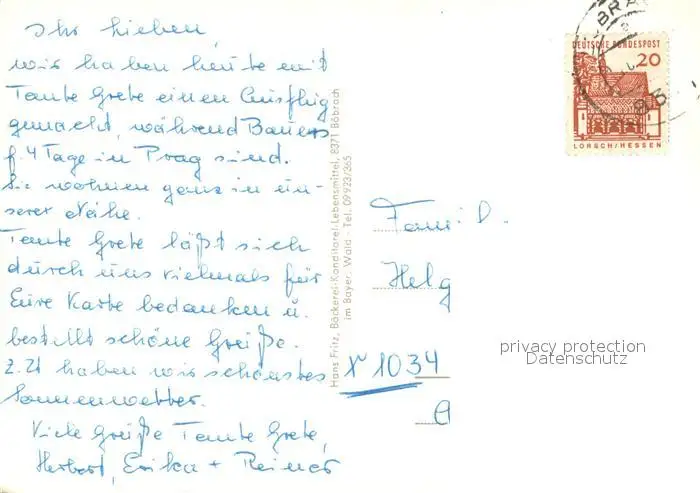 Ihr Lieben,
wir haben heute mit
Tante Grete einen Ausflug
gemacht, während Bauers
f. 4 Tage in Prag sind.
Sie wohnen ganz in un-
serer Nähe.
Tante Grete läßt sich
durch uns vielmals für
Eure Karte bedanken u.
bestellt schöne Grüße.
Z. Zt haben wir schönstes
Sonnenwetter.
Viele Grüße Tante Grete,
Herbert, Erika + Reiner
Hans Fritz, Bäckerei-Konditorei-Lebensmittel, 8371 Böbrach
im Bayer. Wald - Tel. 09923/365
DEUTSCHE BUNDESPOST
20
LORSCH/HESSEN
Famil.
Helg
1034
privacy protection
Datenschutz